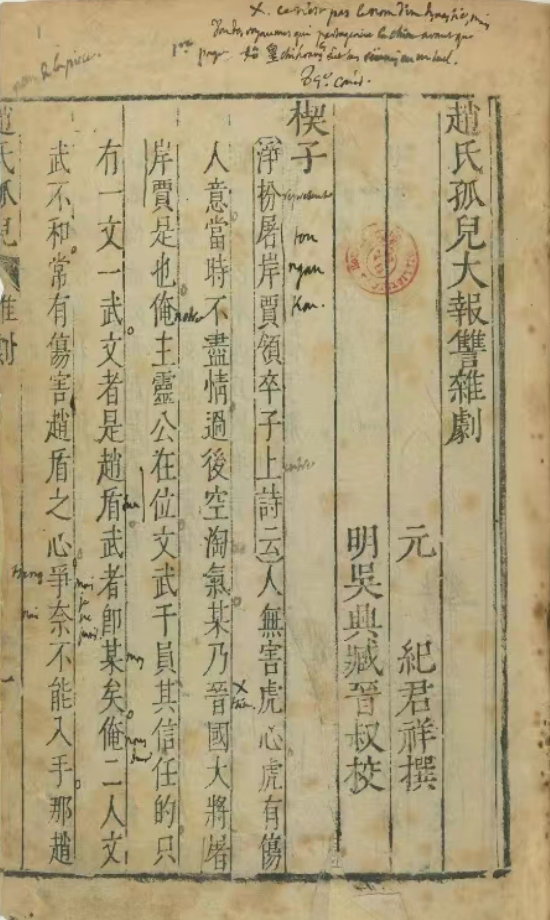 X. ce n'est pas le nom d'une dynastie, mais
d'un des royaumes qui partageaient la Chine avant que
始皇 chi hoang les réunit en un seul.
nom de la pièce.
1ere page
趙氏孤兒大報讐雜劇
元 紀君祥撰
明吳興臧晉叔校
楔子
淨扮屠岸賈領卒子上詩云人無害虎心虎有傷
représente
tou
ngan
kou.
人意當時不盡情過後空淘氣某乃晉國大將屠
岸賈是也俺主靈公在位文武千員其信任的只
有一文一武文者是趙盾武者卽某矣俺二人文
武不和常有傷害趙盾之心爭奈不能入手那趙
趙氏孤兒 雜劇